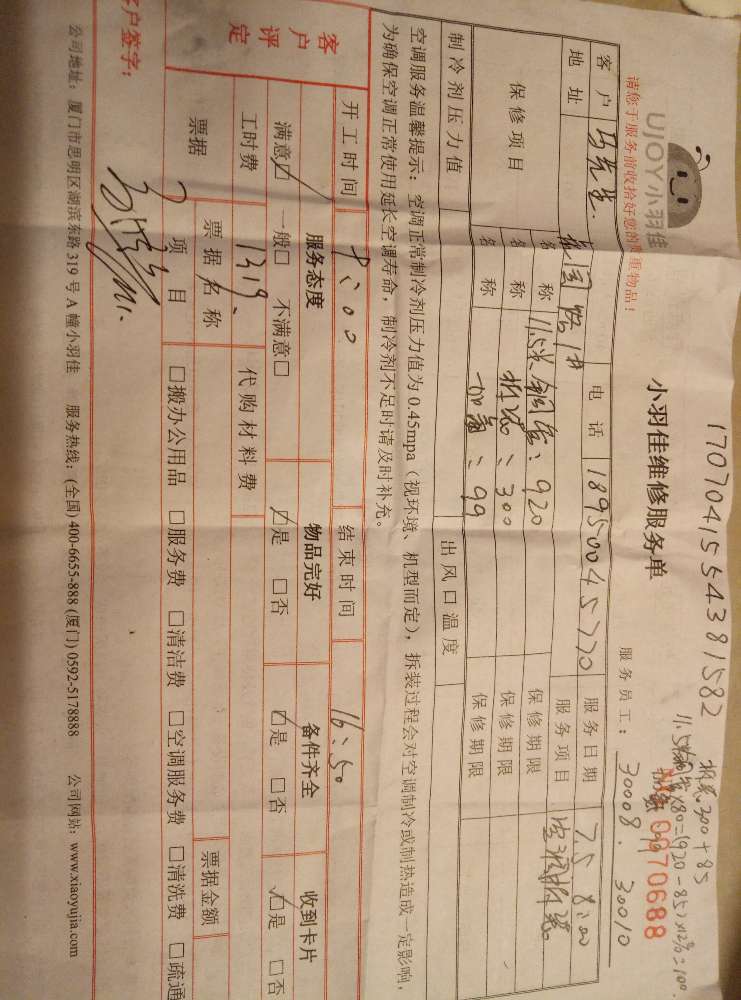 17070415543815​82
拆装300+85
11.5米铜管×80=(920-85)×12%=100.
0870688
UJOY小羽佳
请您于服务前收拾好您的贵重物品！
小羽佳维修服务单
服务员工：30008. 30010
客户 马先生 电话 18950045770 服务日期 7.5 8:00
地址 服务项目 空调拆装
保修项目 名称 11.5米铜管：920 保修期限
名称 拆装：300 保修期限
名称 加氟：99 保修期限
制冷剂压力值 出风口温度
空调服务温馨提示：空调正常制冷剂压力值为0.45mpa（视环境、机型而定），拆装过程会对空调制冷或制热造成一定影响，
为确保空调正常使用延长空调寿命，制冷剂不足时请及时补充。
开工时间 8:00 结束时间 16:50
客户评定 服务态度 物品完好 备件齐全 收到卡片
满意☑ 一般□ 不满意□ ☑是 □否 ☑是 □否 ☑是 □否
工时费 1319. 代购材料费
票据 票据名称 票据金额
项目 □搬办公用品 □服务费 □清洁费 □空调服务费 □清洗费 □疏通
客户签字：
公司地址：厦门市思明区湖滨东路319号A幢小羽佳 服务热线：(全国) 400-6655-888 (厦门) 0592-5178888 公司网站：www.xiaoyujia.com